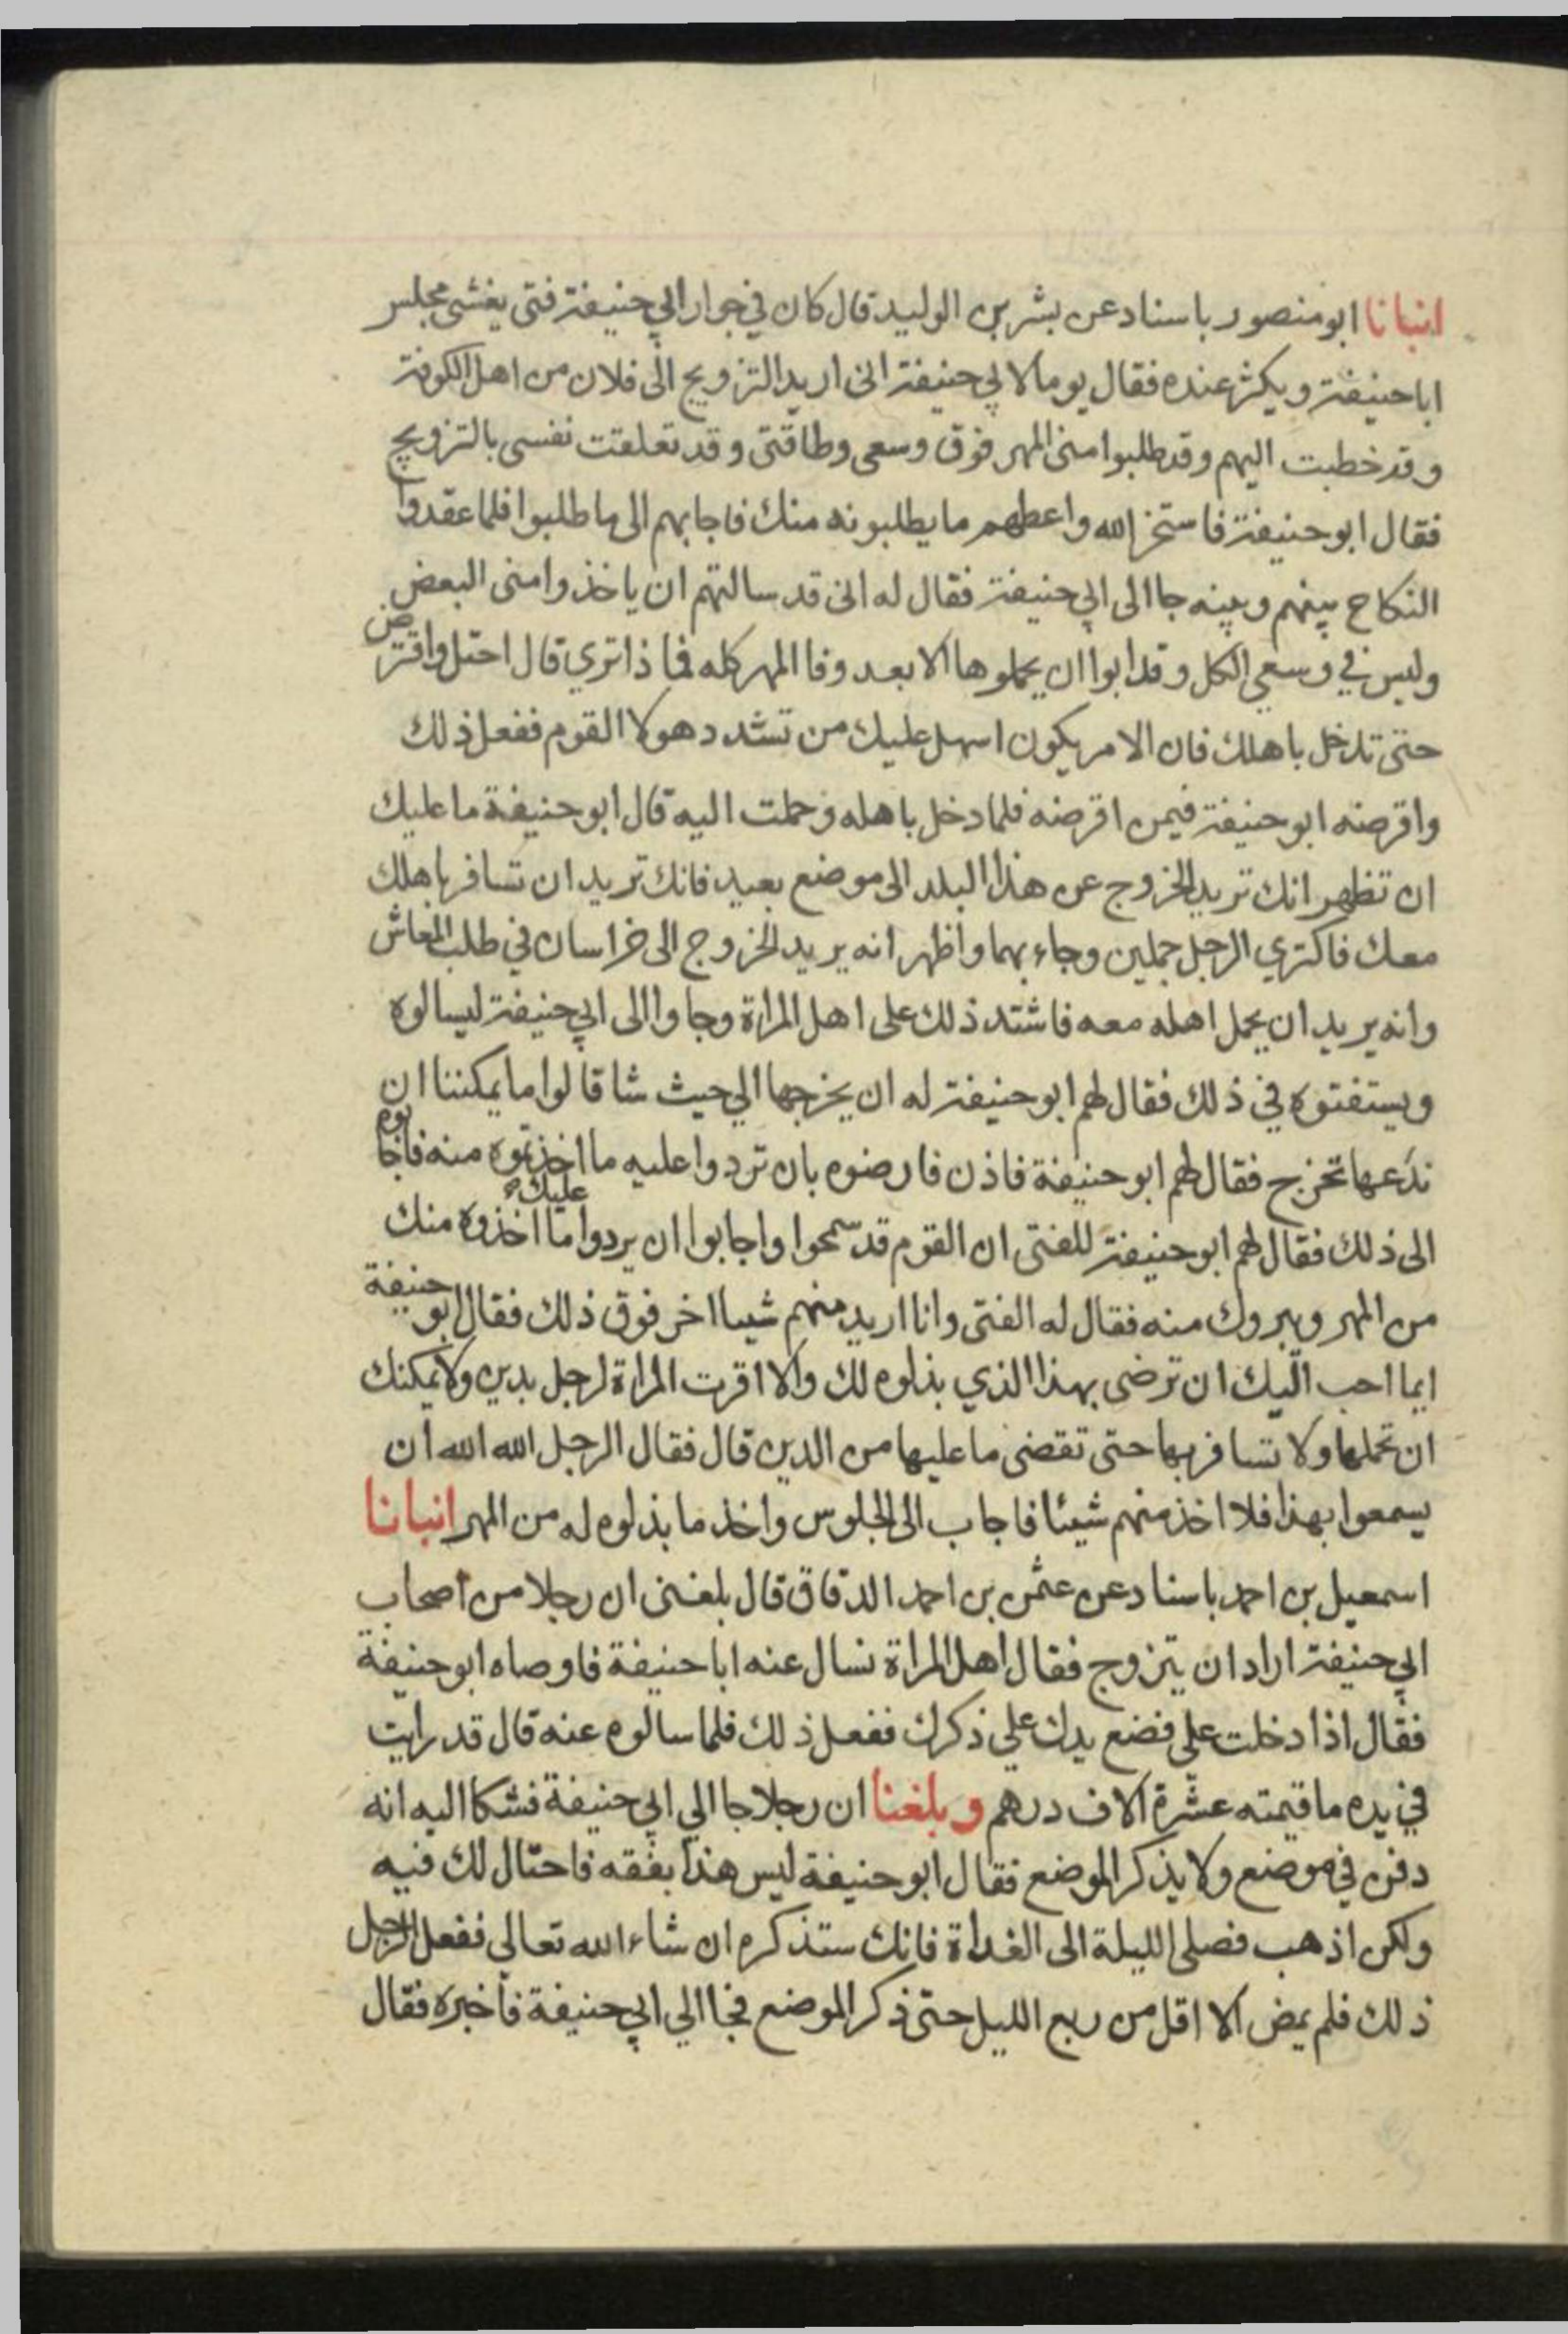 انبانا ابو منصور باسناد عن بشر بن الوليد قال كان في جوار ابي حنيفة فتى يغشى مجلس
ابا حنيفة ويكثر عنده فقال يوما لابي حنيفة اني اريد التزويج الى فلان من اهل الكوفة
وقد خطبت اليهم وقد طلبوا مني المهر فوق وسعي وطاقتي وقد تعلقت نفسي بالتزويج
فقال ابو حنيفة فاستخر الله واعطهم ما يطلبونه منك فاجابهم الى ما طلبوا فلما عقدوا
النكاح بينهم وبينه جا الى ابي حنيفة فقال له اني قد سالتهم ان ياخذوا مني البعض
وليس في وسعي الكل وقد ابوا ان يحملوها الا بعد وفا المهر كله فما ذا تري قال احتل واقترض
حتى تدخل باهلك فان الامر يكون اسهل عليك من تشدد هولا القوم ففعل ذلك
واقرضه ابو حنيفة فيمن اقرضه فلما دخل باهله وحملت اليه قال ابو حنيفة ما عليك
ان تظهر انك تريد الخروج عن هذا البلد الى موضع بعيد فانك تريد ان تسافر باهلك
معك فاكتري الرجل جملين وجاء بهما واظهر انه يريد الخروج الى خراسان في طلب المعاش
وانه يريد ان يحمل اهله معه فاشتد ذلك على اهل المراة وجاوا الى ابي حنيفة ليسالوه
ويستفتوه في ذلك فقال لهم ابو حنيفة له ان يخرجها الي حيث شا قالوا ما يمكننا ان
ندعها تخرج فقال لهم ابو حنيفة فاذن فارضوه بان تردوا عليه ما اخذتموه منه فاجابوه
الى ذلك فقال لهم ابو حنيفة للفتى ان القوم قد سمحوا واجابوا ان يردوا عليك ما اخذوه منك
من المهر ويبروك منه فقال له الفتى وانا اريد منهم شيا اخر فوق ذلك فقال ابو حنيفة
ايما احب اليك ان ترضى بهذا الذي بذلوه لك والا اقرت المراة لرجل بدين ولا يمكنك
ان تحملها ولا تسافر بها حتى تقضى ما عليها من الدين قال فقال الرجل الله الله ان
يسمعوا بهذا فلا اخذ منهم شيئا فاجاب الى الجلوس واخذ ما بذلوه له من المهر انبانا
اسمعيل بن احمد باسناد عن عثمن بن احمد الدقاق قال بلغني ان رجلا من اصحاب
ابي حنيفة اراد ان يتزوج فقال اهل المراة نسال عنه ابا حنيفة فاوصاه ابو حنيفة
فقال اذا دخلت علي فضع يدك علي ذكرك ففعل ذلك فلما سالوه عنه قال قد رايت
في يده ما قيمته عشرة الاف درهم وبلغنا ان رجلا جا الي ابي حنيفة فشكا اليه انه
دفن في موضع ولا يذكر الموضع فقال ابو حنيفة ليس هذا بفقه فاحتال لك فيه
ولكن اذهب فصلى الليلة الى الغداة فانك ستذكره ان شاء الله تعالى ففعل الرجل
ذلك فلم يمض الا اقل من ربع الليل حتى ذكر الموضع فجا الي ابي حنيفة فأخبره فقال